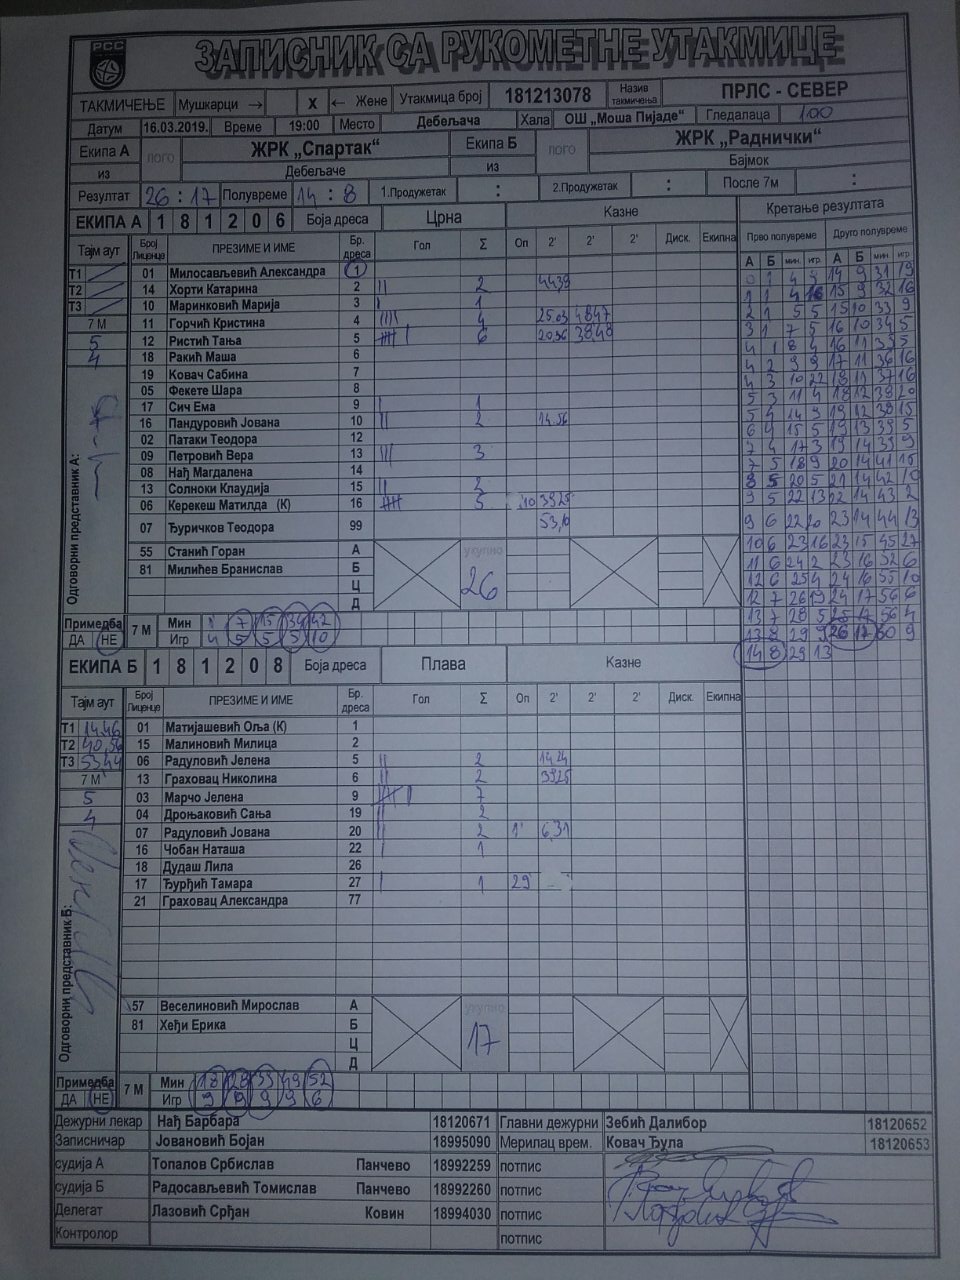 РСС
ЗАПИСНИК СА РУКОМЕТНЕ УТАКМИЦЕ
ТАКМИЧЕЊЕ Мушкарци → X ← Жене Утакмица број 181213078 Назив такмичења ПРЛС - СЕВЕР
Датум 16.03.2019. Време 19:00 Место Дебељача Хала ОШ „Моша Пијаде“ Гледалаца 100
Екипа А лого ЖРК „Спартак“ Екипа Б лого ЖРК „Раднички“
из Дебељаче из Бајмок
Резултат 26 : 17 Полувреме 14 : 8 1.Продужетак : 2.Продужетак : После 7м :
ЕКИПА А 1 8 1 2 0 6 Боја дреса Црна Казне Кретање резултата
Прво полувреме Друго полувреме
Тајм аут Број Лиценце ПРЕЗИМЕ И ИМЕ Бр. дреса Гол Σ Оп 2' 2' 2' Диск. Екипна А Б мин. игр. А Б мин. игр.
Т1 01 Милосављевић Александра 1
Т2 14 Хорти Катарина 2 || 2 44 39
Т3 10 Маринковић Марија 3 | 1
7 М 11 Горчић Кристина 4 |||| 4 25.03 48 47
5 12 Ристић Тања 5 6 20 36 38 48
4 18 Ракић Маша 6
19 Ковач Сабина 7
05 Фекете Шара 8
17 Сич Ема 9 | 1
16 Пандуровић Јована 10 || 2 14.56
02 Патаки Теодора 12
09 Петровић Вера 13 ||| 3
08 Нађ Магдалена 14
13 Солноки Клаудија 15 || 2
06 Керекеш Матилда (К) 16 5 10 39 25
07 Ђуричков Теодора 99 53,10
55 Станић Горан А укупно
81 Милићев Бранислав Б 26
Ц
Д
Одговорни представник А:
0 1 4 9 14 9 31 19
2 1 5 5 15 10 33 9
3 1 7 5 16 10 34 5
4 1 8 4
4 2 9 9 17 11 36 16
4 3 10 22
5 3 11 4 18 12 38 20
5 4 14 9 19 12 38 15
6 4 15 5 19 13 39 5
7 4 17 3 19 14 39 9
7 5 18 9 20 14 41 15
8 5 20 5 21 14 42 10
9 5 22 13 22 14 43 2
23 14 44 13
10 6 23 16 23 15 45 27
11 6 24 2 23 16 52 6
12 6 25 4 24 16 55 10
12 7 26 19 24 17 56 6
13 7 28 5 25 17 56 4
13 8 29 9 26 17 60 9
14 8 29 13
Примедба ДА НЕ 7 М Мин 7 15 39 42
Игр 4 5 5 5 10
ЕКИПА Б 1 8 1 2 0 8 Боја дреса Плава Казне
Тајм аут Број Лиценце ПРЕЗИМЕ И ИМЕ Бр. дреса Гол Σ Оп 2' 2' 2' Диск. Екипна
Т1 14,46 01 Матијашевић Оља (К) 1
Т2 40,56 15 Малиновић Милица 2
Т3 53,44 06 Радуловић Јелена 5 || 2 14 24
7 М 13 Граховац Николина 6 || 2 39 25
5 03 Марчо Јелена 9 7
4 04 Дроњаковић Сања 19 || 2
07 Радуловић Јована 20 || 2 1' 6,31
16 Чобан Наташа 22 | 1
18 Дудаш Лила 26
17 Ђурђић Тамара 27 | 1 29
21 Граховац Александра 77
57 Веселиновић Мирослав А укупно
81 Хеђи Ерика Б 17
Ц
Д
Одговорни представник Б:
Примедба ДА НЕ 7 М Мин 18 28 39 49 52
Игр 9 9 9 9 6
Дежурни лекар Нађ Барбара 18120671 Главни дежурни Зебић Далибор 18120652
Записничар Јовановић Бојан 18995090 Мерилац врем. Ковач Ђула 18120653
судија А Топалов Србислав Панчево 18992259 потпис
судија Б Радосављевић Томислав Панчево 18992260 потпис
Делегат Лазовић Срђан Ковин 18994030 потпис
Контролор потпис